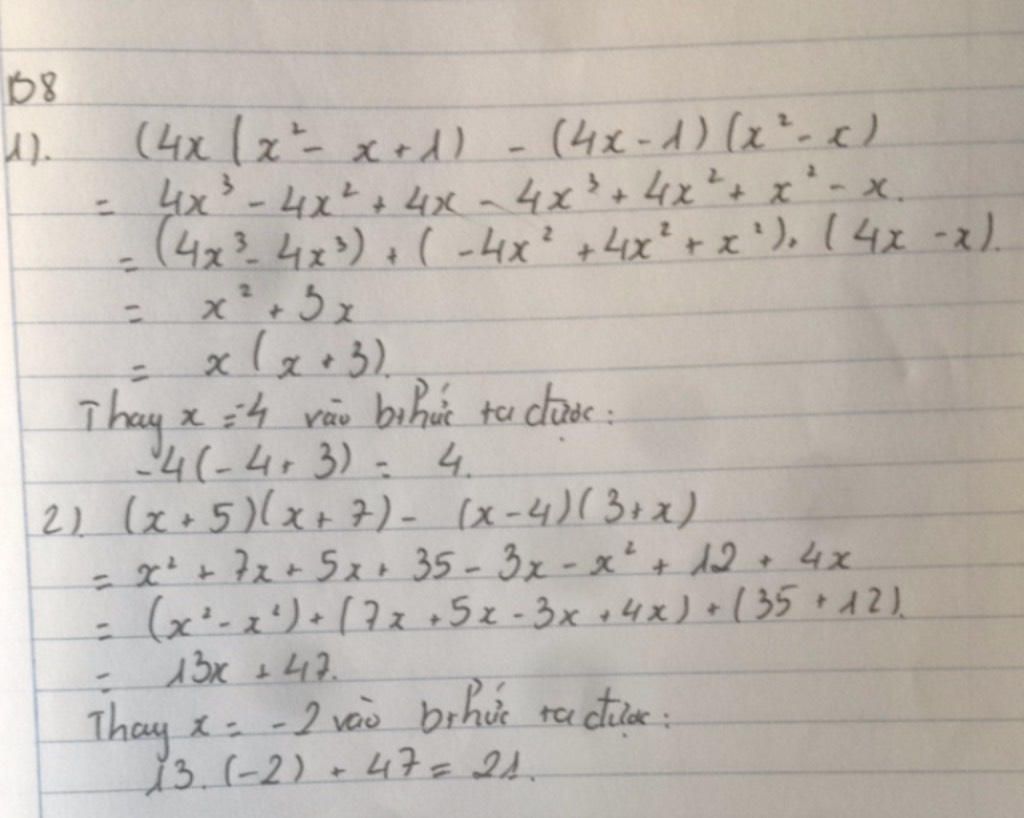 B8
1). (4x(x² - x + 1) - (4x - 1)(x² - x)
= 4x³ - 4x² + 4x - 4x³ + 4x² + x² - x.
= (4x³ - 4x³) + (-4x² + 4x² + x²) + (4x - x).
= x² + 3x
= x(x + 3).
Thay x = -4 vào bthức ta được:
-4(-4 + 3) = 4.
2). (x + 5)(x + 7) - (x - 4)(3 + x)
= x² + 7x + 5x + 35 - 3x - x² + 12 + 4x
= (x² - x²) + (7x + 5x - 3x + 4x) + (35 + 12).
= 13x + 47.
Thay x = -2 vào bthức ta được:
13.(-2) + 47 = 21.